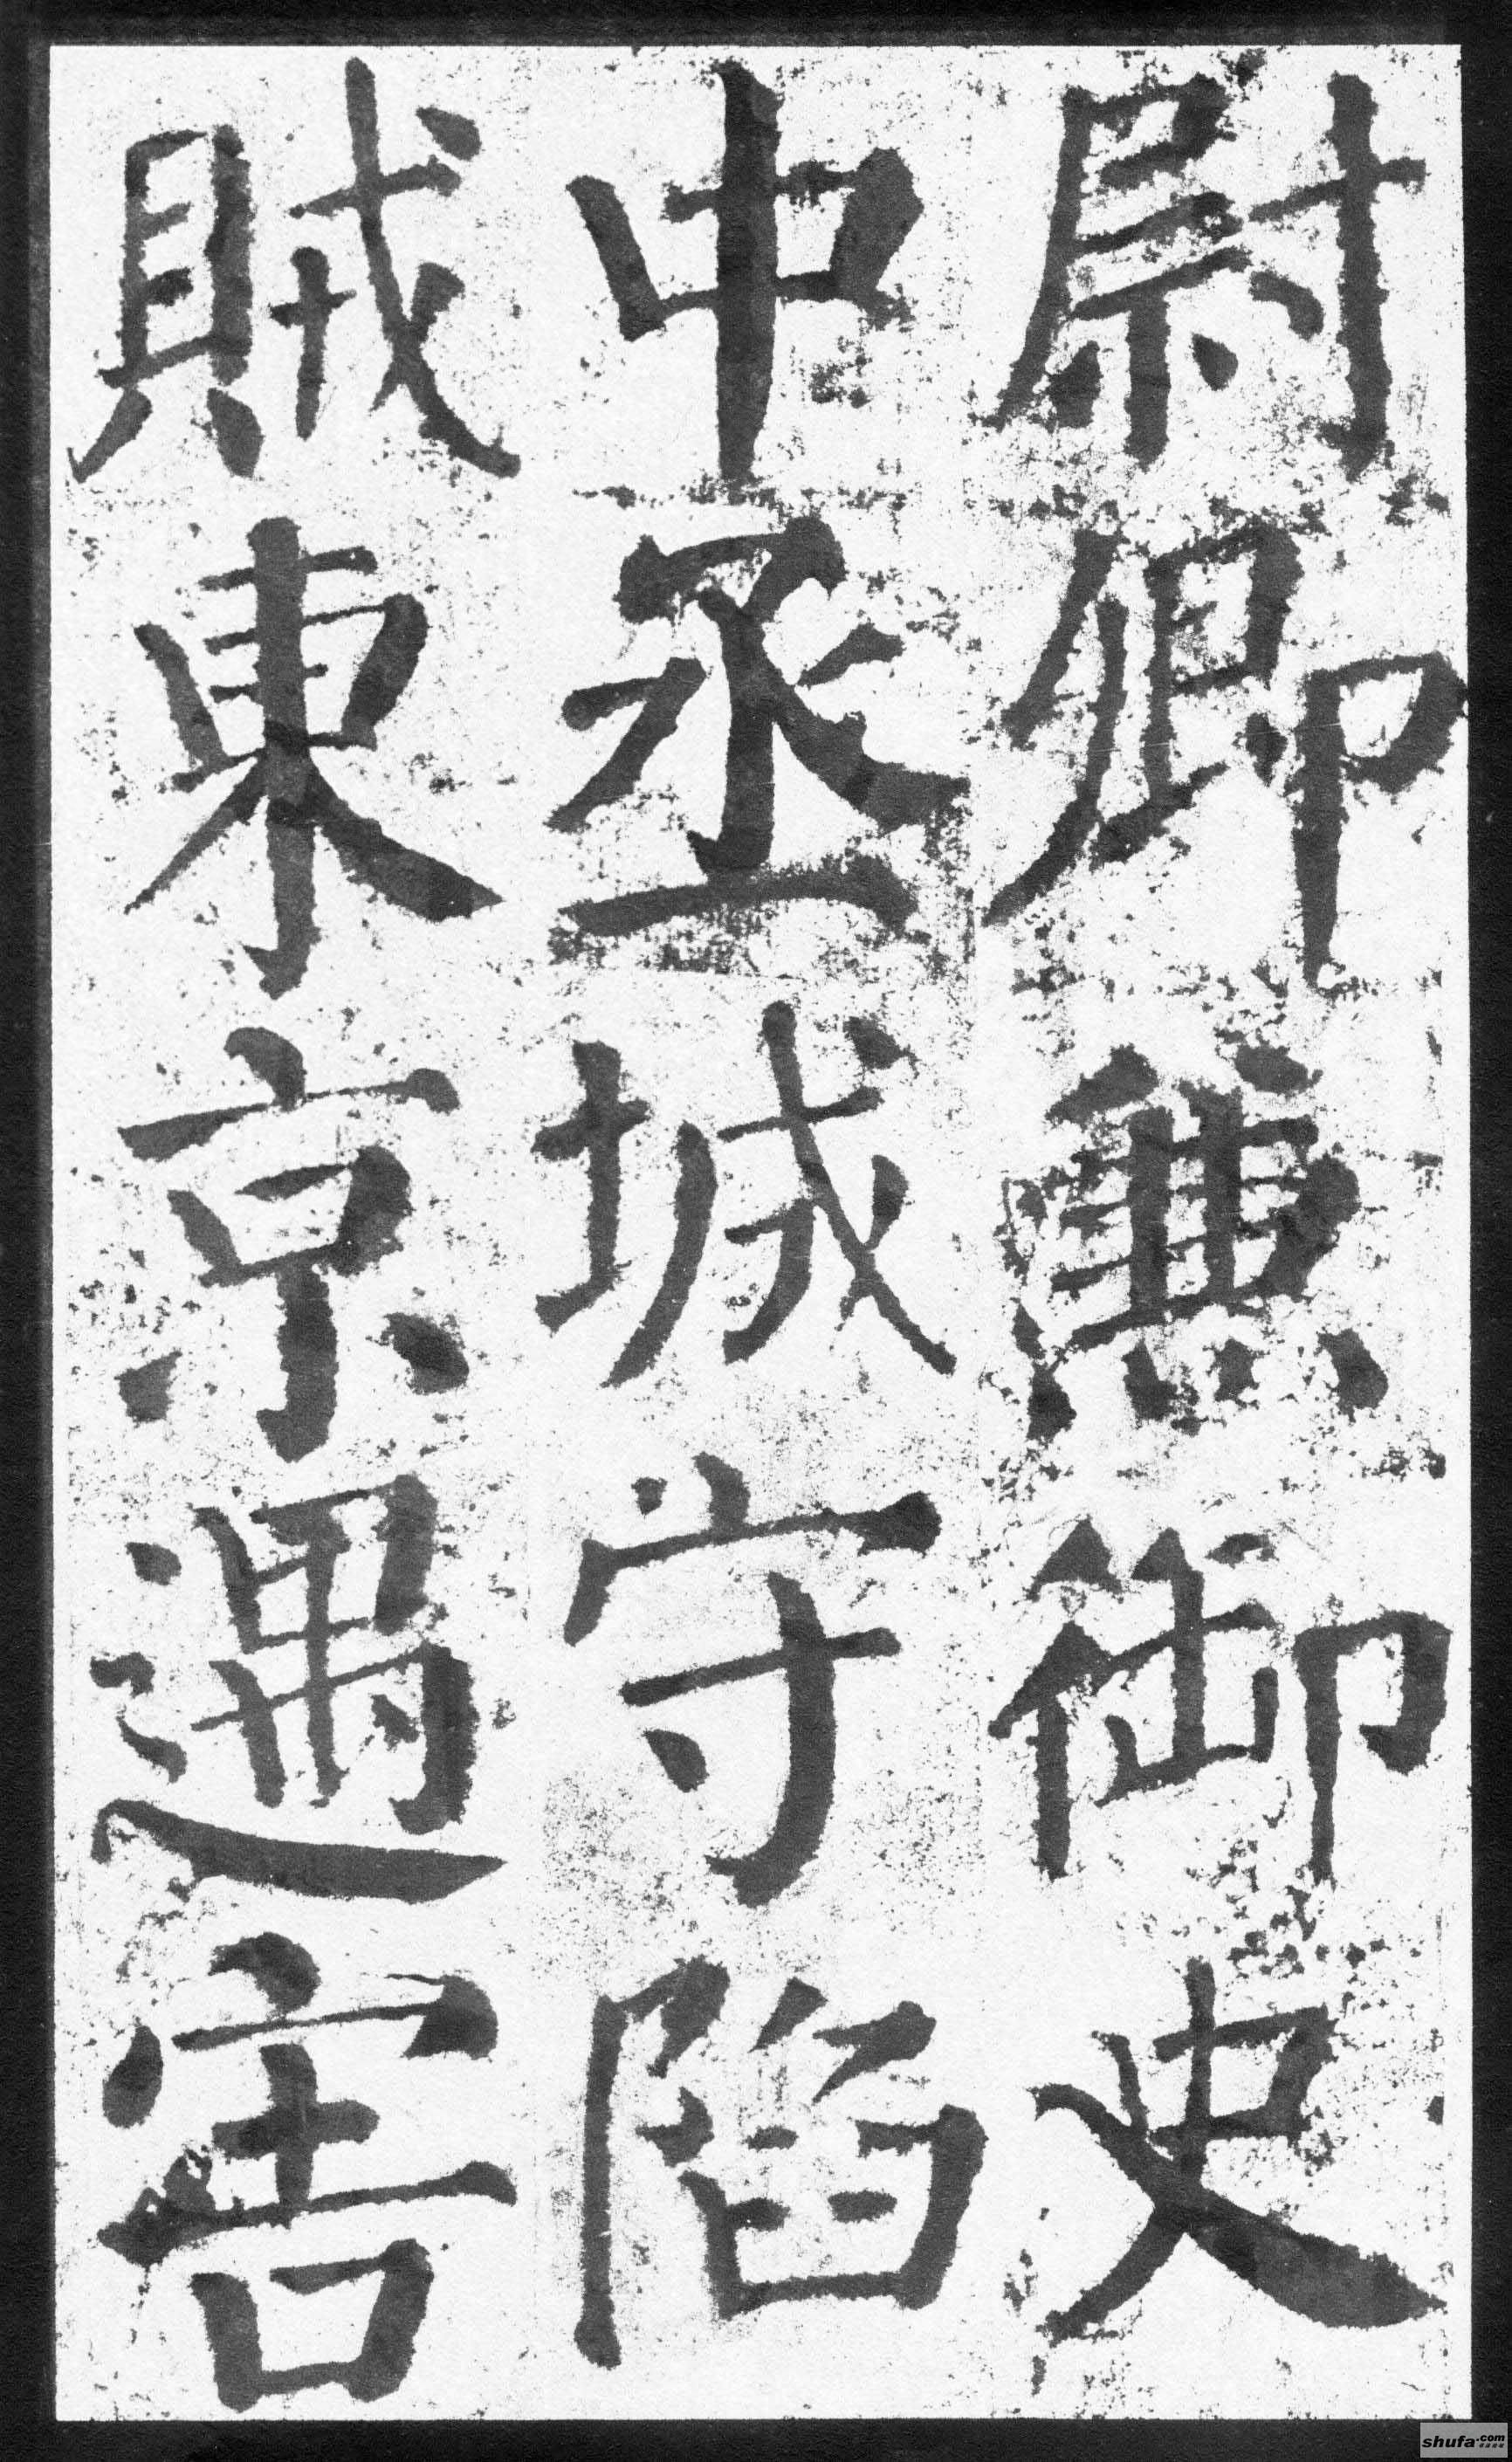 尉卿兼御史
中丞城守陷
賊東京遇害
shufa.com